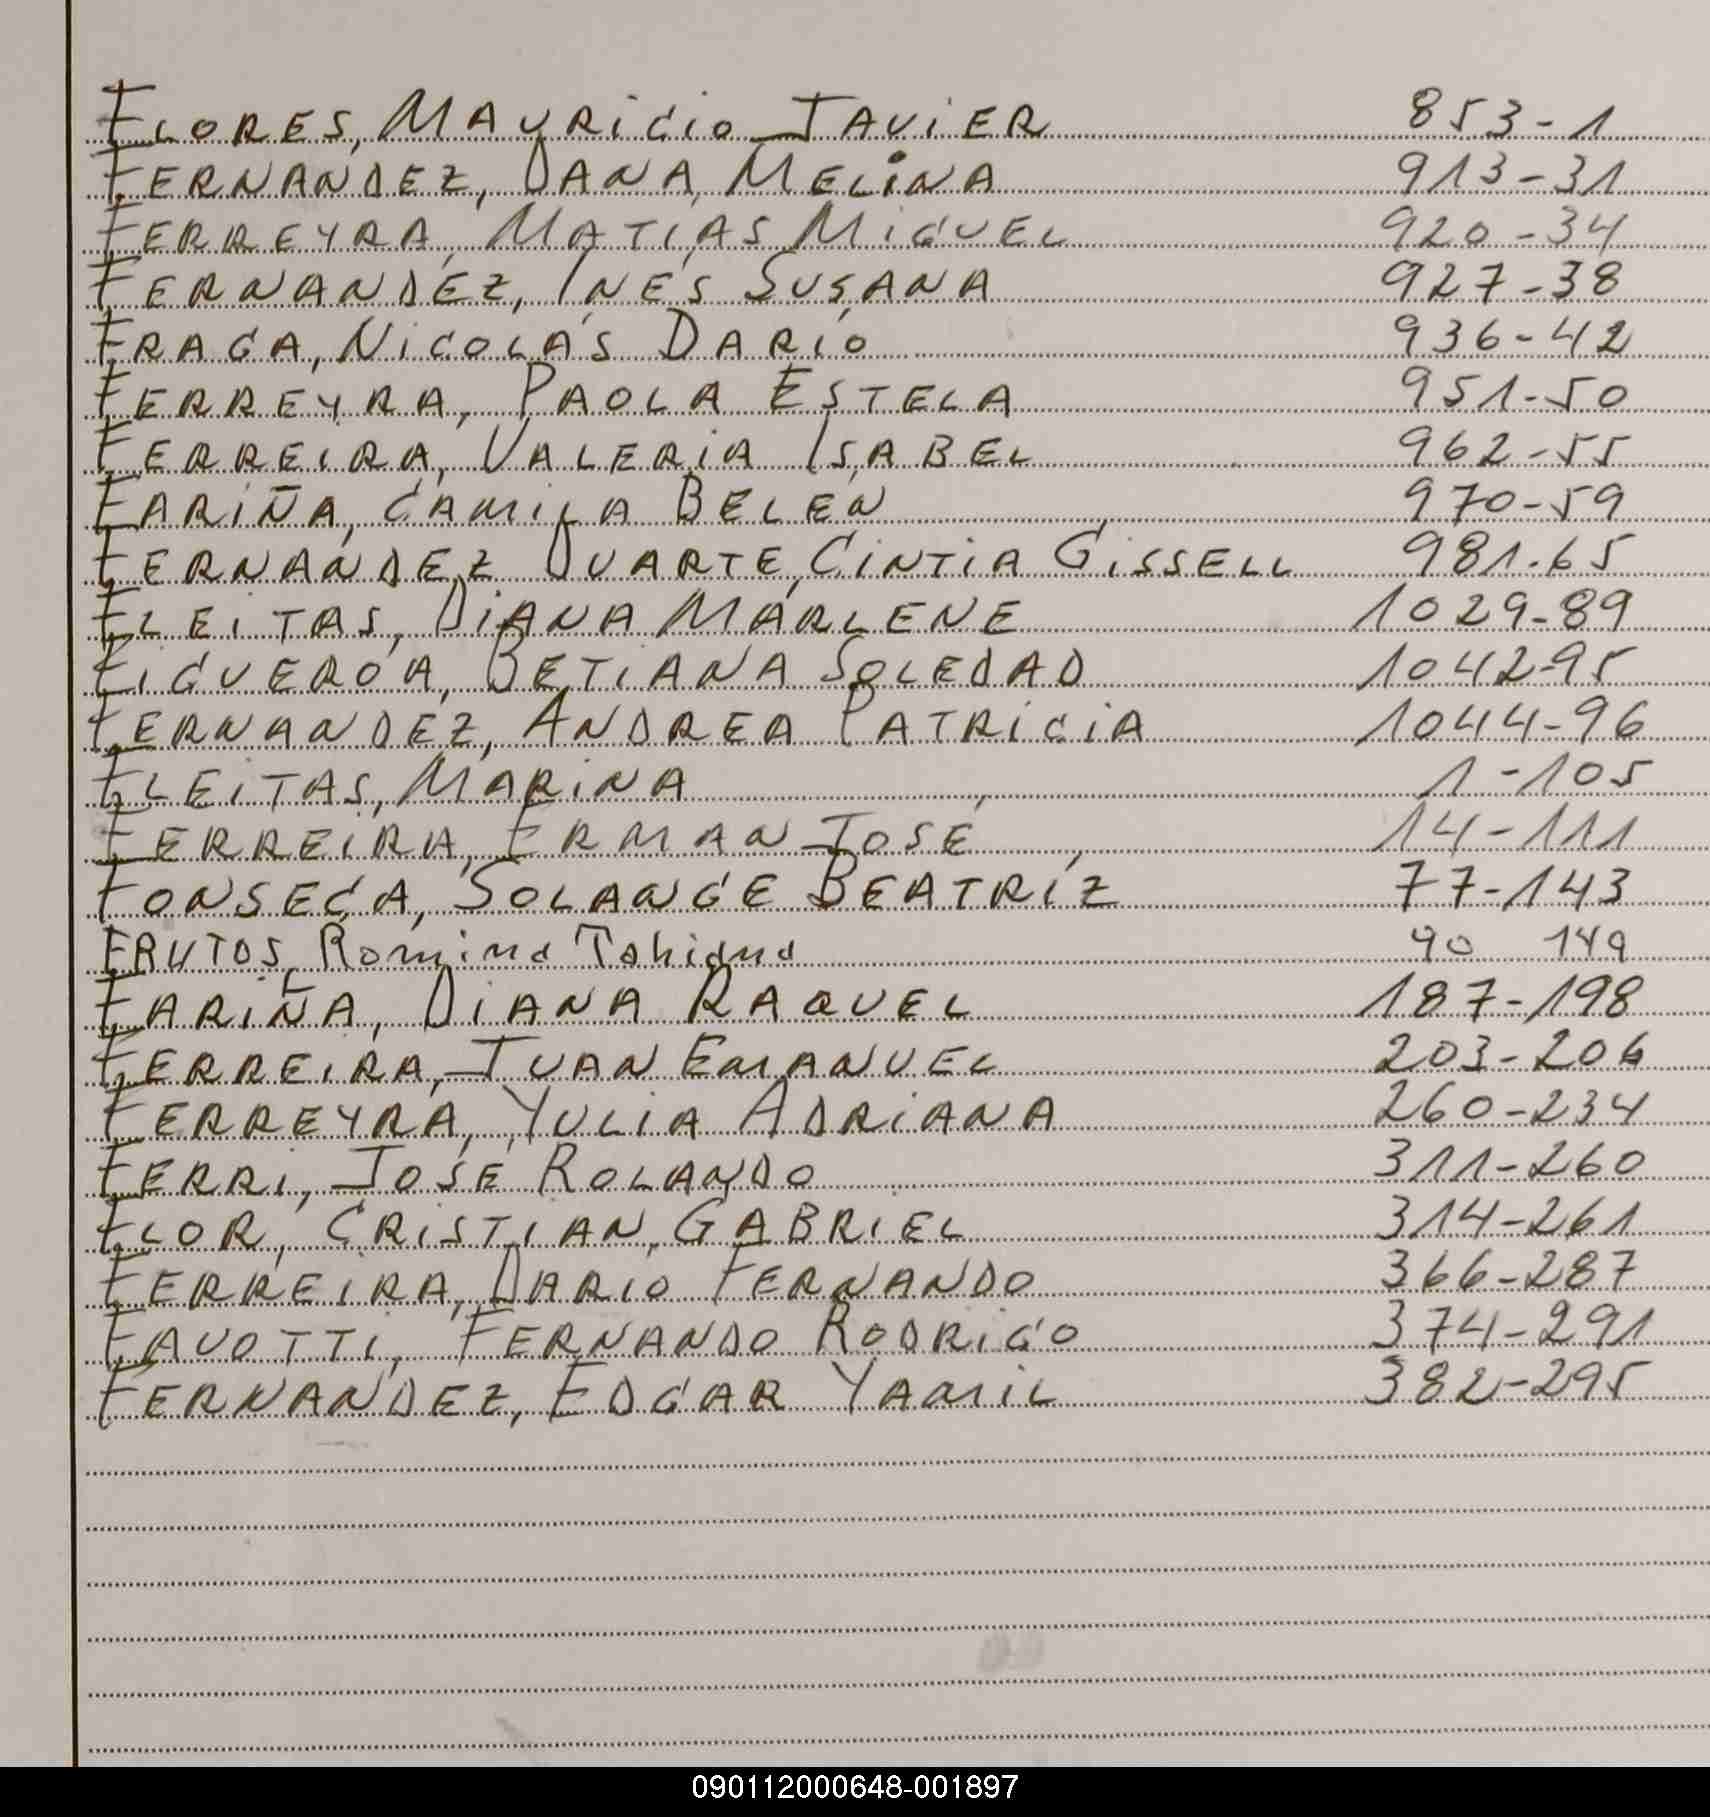 FLORES, MAURICIO JAVIER 853-1
FERNANDEZ, DANA MELINA 913-31
FERREYRA, MATIAS MIGUEL 920-34
FERNANDEZ, INÉS SUSANA 927-38
FRAGA, NICOLÁS DARÍO 936-42
FERREYRA, PAOLA ESTELA 951-50
FERREIRA, VALERIA ISABEL 962-55
FARIÑA, CAMILA BELÉN 970-59
FERNANDEZ DUARTE, CINTIA GISSELL 981-65
FLEITAS, DIANA MARLENE 1029-89
FIGUEROA, BETIANA SOLEDAD 1042-95
FERNANDEZ, ANDREA PATRICIA 1044-96
FLEITAS, MARINA 1-105
FERREIRA, ERMAN JOSÉ 14-111
FONSECA, SOLANGE BEATRÍZ 77-143
FRUTOS, Romina Tahiana 90 149
FARIÑA, DIANA RAQUEL 187-198
FERREIRA, JUAN EMANUEL 203-206
FERREYRA, YULIA ADRIANA 260-234
FERRI, JOSÉ ROLANDO 311-260
FLOR, CRISTIAN GABRIEL 314-261
FERREIRA, DARIO FERNANDO 366-287
FAVOTTI, FERNANDO RODRIGO 374-291
FERNANDEZ, EDGAR YAMIL 382-295
090112000648-001897